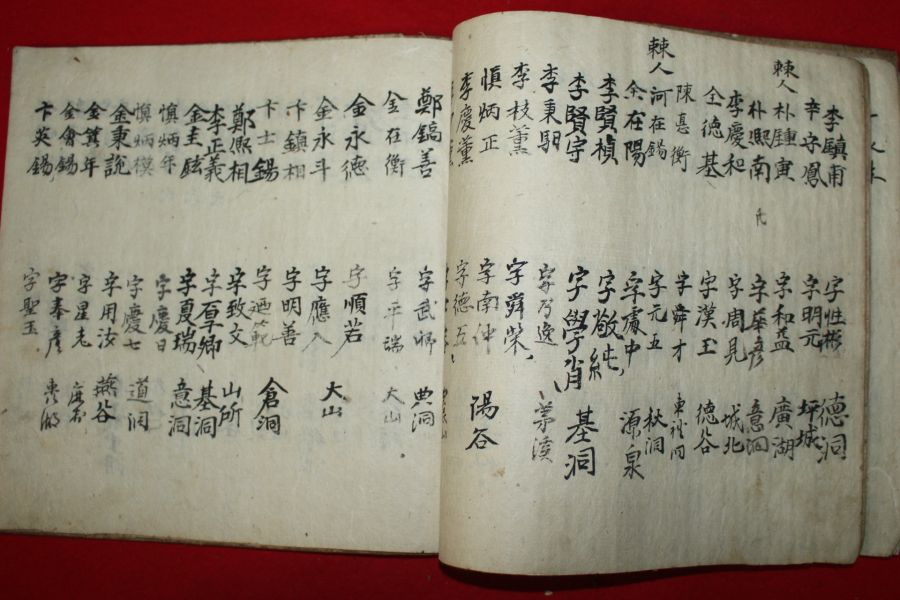 李鎭甫 字性彬 德洞
辛守鳳 字明元 坪城
棘人 朴鍾寅 字和益 廣湖
朴熙南 字華彦 意洞
李慶和 字周見 城北
仝德基 字漢玉 德谷
陳衡 字舜才
棘人 河在錫 字元五 秋洞
余在陽 字處中 源泉
李賢楨 字敬純
李賢宇 字學肖 基洞
李秉馹 字乃逸
李枝薰 字舜榮
愼炳正 字南仲 陽谷
李慶薰 字德五
鄭鎬善 字武卿 典洞
金在衡 字平瑞 大山
金永德 字順若
金永斗 字應入 大山
卞鎭相 字明善
卞士錫 字迺範 倉洞
鄭熙相 字致文 山所
李正義 字厚卿 基洞
金圭鉉 字夏瑞 意洞
愼炳年 字慶日
愼炳模 字慶七 道洞
金秉說 字用汝 燕谷
金箕年 字星老
金會錫 字奉彦
卞炎錫 字聖玉